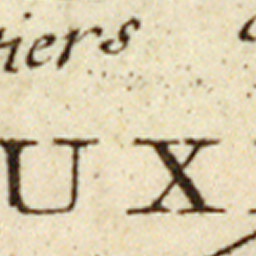 tiers
UX